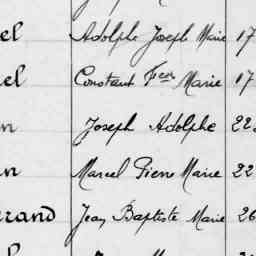 el Adolphe Joseph Marie 17
el Constant Fçen Marie 17
n Joseph Adolphe 22
n Marcel Pierre Marie 22
rand Jean Baptiste Marie 26